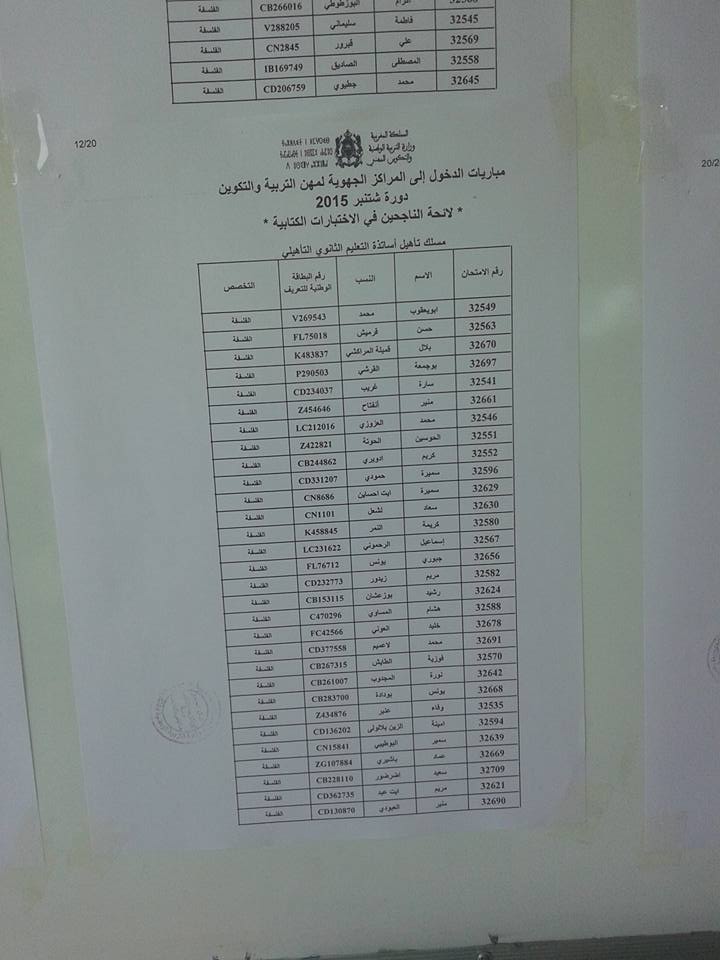 CB266016 البوزطوطي الفلسفة
32545 فاطمة سليماني V288205 الفلسفة
32569 علي قبرور CN2845 الفلسفة
32558 المصطفى الصاديق IB169749 الفلسفة
32645 محمد جطيوي CD206759 الفلسفة
12/20
المملكة المغربية
وزارة التربية الوطنية
والتكوين المهني
مباريات الدخول إلى المراكز الجهوية لمهن التربية والتكوين
دورة شتنبر 2015
* لائحة الناجحين في الاختبارات الكتابية *
مسلك تأهيل أساتذة التعليم الثانوي التأهيلي
رقم الامتحان الاسم النسب رقم البطاقة الوطنية للتعريف التخصص
32549 ابويعقوب محمد V269543 الفلسفة
32563 حسن قرميش FL75018 الفلسفة
32670 بلال قميتة المراكشي K483837 الفلسفة
32697 بوجمعة القرشي P290503 الفلسفة
32541 سارة غريب CD234037 الفلسفة
32661 منير أنفتاح Z454646 الفلسفة
32546 محمد العزوزي LC212016 الفلسفة
32551 الحوسين الحوتة Z422821 الفلسفة
32552 كريم ادويري CB244862 الفلسفة
32596 سميرة حمودي CD331207 الفلسفة
32629 سميرة ايت احساين CN8686 الفلسفة
32630 سعاد لشعل CN1101 الفلسفة
32580 كريمة النمر K458845 الفلسفة
32567 إسماعيل الرحموني LC231622 الفلسفة
32656 جبوري يونس FL76712 الفلسفة
32582 مريم زيدور CD232773 الفلسفة
32624 رشيد بوزعشان CB153115 الفلسفة
32588 هشام المساوي C470296 الفلسفة
32678 خليد العوني FC42566 الفلسفة
32691 محمد لاعميم CD377558 الفلسفة
32570 فوزية الطايش CB267315 الفلسفة
32642 نورة المجدوب CB261007 الفلسفة
32668 يونس بودادة CB283700 الفلسفة
32535 وفاء عنبر Z434876 الفلسفة
32594 امينة الزين بلالولى CD136202 الفلسفة
32639 سمير البوطيبي CN15841 الفلسفة
32669 عماد باشيري ZG107884 الفلسفة
32709 سعيد اضرضور CB228110 الفلسفة
32621 مريم ايت عبد CD362735 الفلسفة
32690 منير العبودي CD130870 الفلسفة